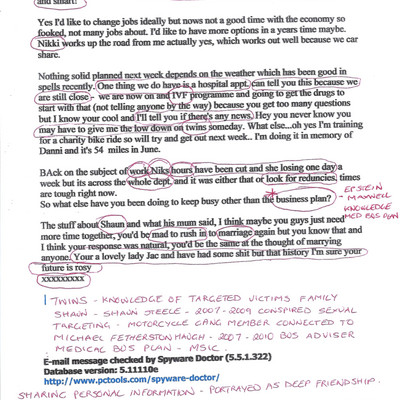 and smart!
Yes I'd like to change jobs ideally but nows not a good time with the economy so
fooked, not many jobs about. I'd like to have more options in a years time maybe.
Nikki works up the road from me actually yes, which works out well because we car
share.
Nothing solid planned next week depends on the weather which has been good in
spells recently. One thing we do have is a hospital appt, can tell you this because we
are still close - we are now on and IVF programme and going to get the drugs to
start with that (not telling anyone by the way) because you get too many questions
but I know your cool and I'll tell you if there's any news. Hey you never know you
may have to give me the low down on twins someday. What else...oh yes I'm training
for a charity bike ride so will try and get out next week.. I'm doing it in memory of
Danni and it's 54 miles in June.
BAck on the subject of work Niks hours have been cut and she losing one day a
week but its across the whole dept, and it was either that or look for reduncies, times
are tough right now.
So what else have you been doing to keep busy other than the business plan?
* EPSTEIN
MAXWELL
KNOWLEDGE
MED BUS PLAN
The stuff about Shaun and what his mum said, I think maybe you guys just need
more time together, you'd be mad to rush in to marriage again but you know that and
I think your response was natural, you'd be the same at the thought of marrying
anyone. Your a lovely lady Jac and have had some shit but that history I'm sure your
future is rosy
xxxxxxxxx
TWINS - KNOWLEDGE OF TARGETED VICTIMS FAMILY
SHAUN - SHAUN STEELE - 2007-2009 CONSPIRED SEXUAL
TARGETING - MOTORCYCLE GANG MEMBER CONNECTED TO
MICHAEL FETHERSTONHAUGH - 2007 - 2010 BUS ADVISER
MEDICAL BUS PLAN - MSIC.
E-mail message checked by Spyware Doctor (5.5.1.322)
Database version: 5.11110e
http://www.pctools.com/spyware-doctor/
SHARING PERSONAL INFORMATION - PORTRAYED AS DEEP FRIENDSHIP.